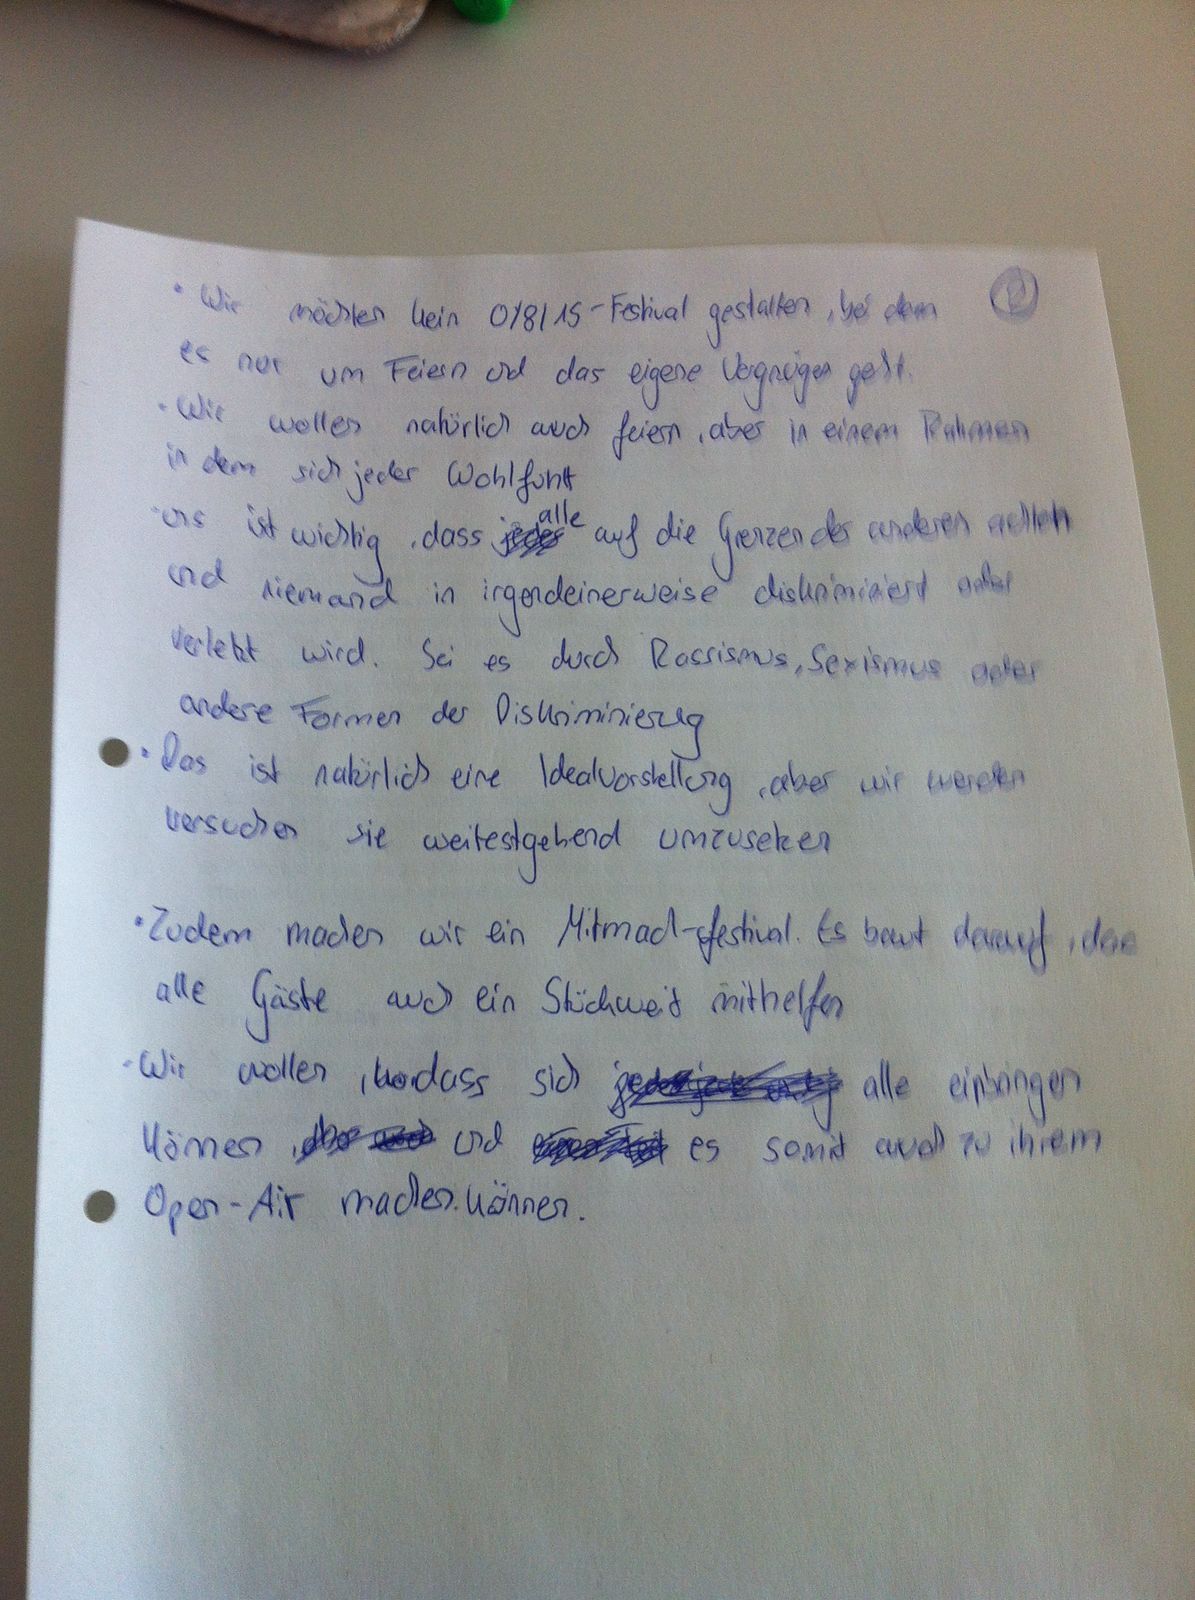 • Wir möchten kein 0/8/15-Festival gestalten, bei dem
es nur um Feiern und das eigene Vergnügen geht.
• Wir wollen natürlich auch feiern, aber in einem Rahmen
in dem sich jeder Wohlfühlt
• uns ist wichtig, dass alle auf die Grenzen der anderen achten
und niemand in irgendeinerweise diskriminiert oder
verletzt wird. Sei es durch Rassismus, Sexismus oder
andere Formen der Diskriminierung
• Das ist natürlich eine Idealvorstellung, aber wir werden
versuchen sie weitestgehend umzusetzen
• Zudem machen wir ein Mitmach-festival. Es baut darauf, das
alle Gäste auch ein Stückweit mithelfen
• Wir wollen, dass sich alle einbringen
können und es somit auch zu ihrem
Open-Air machen können.